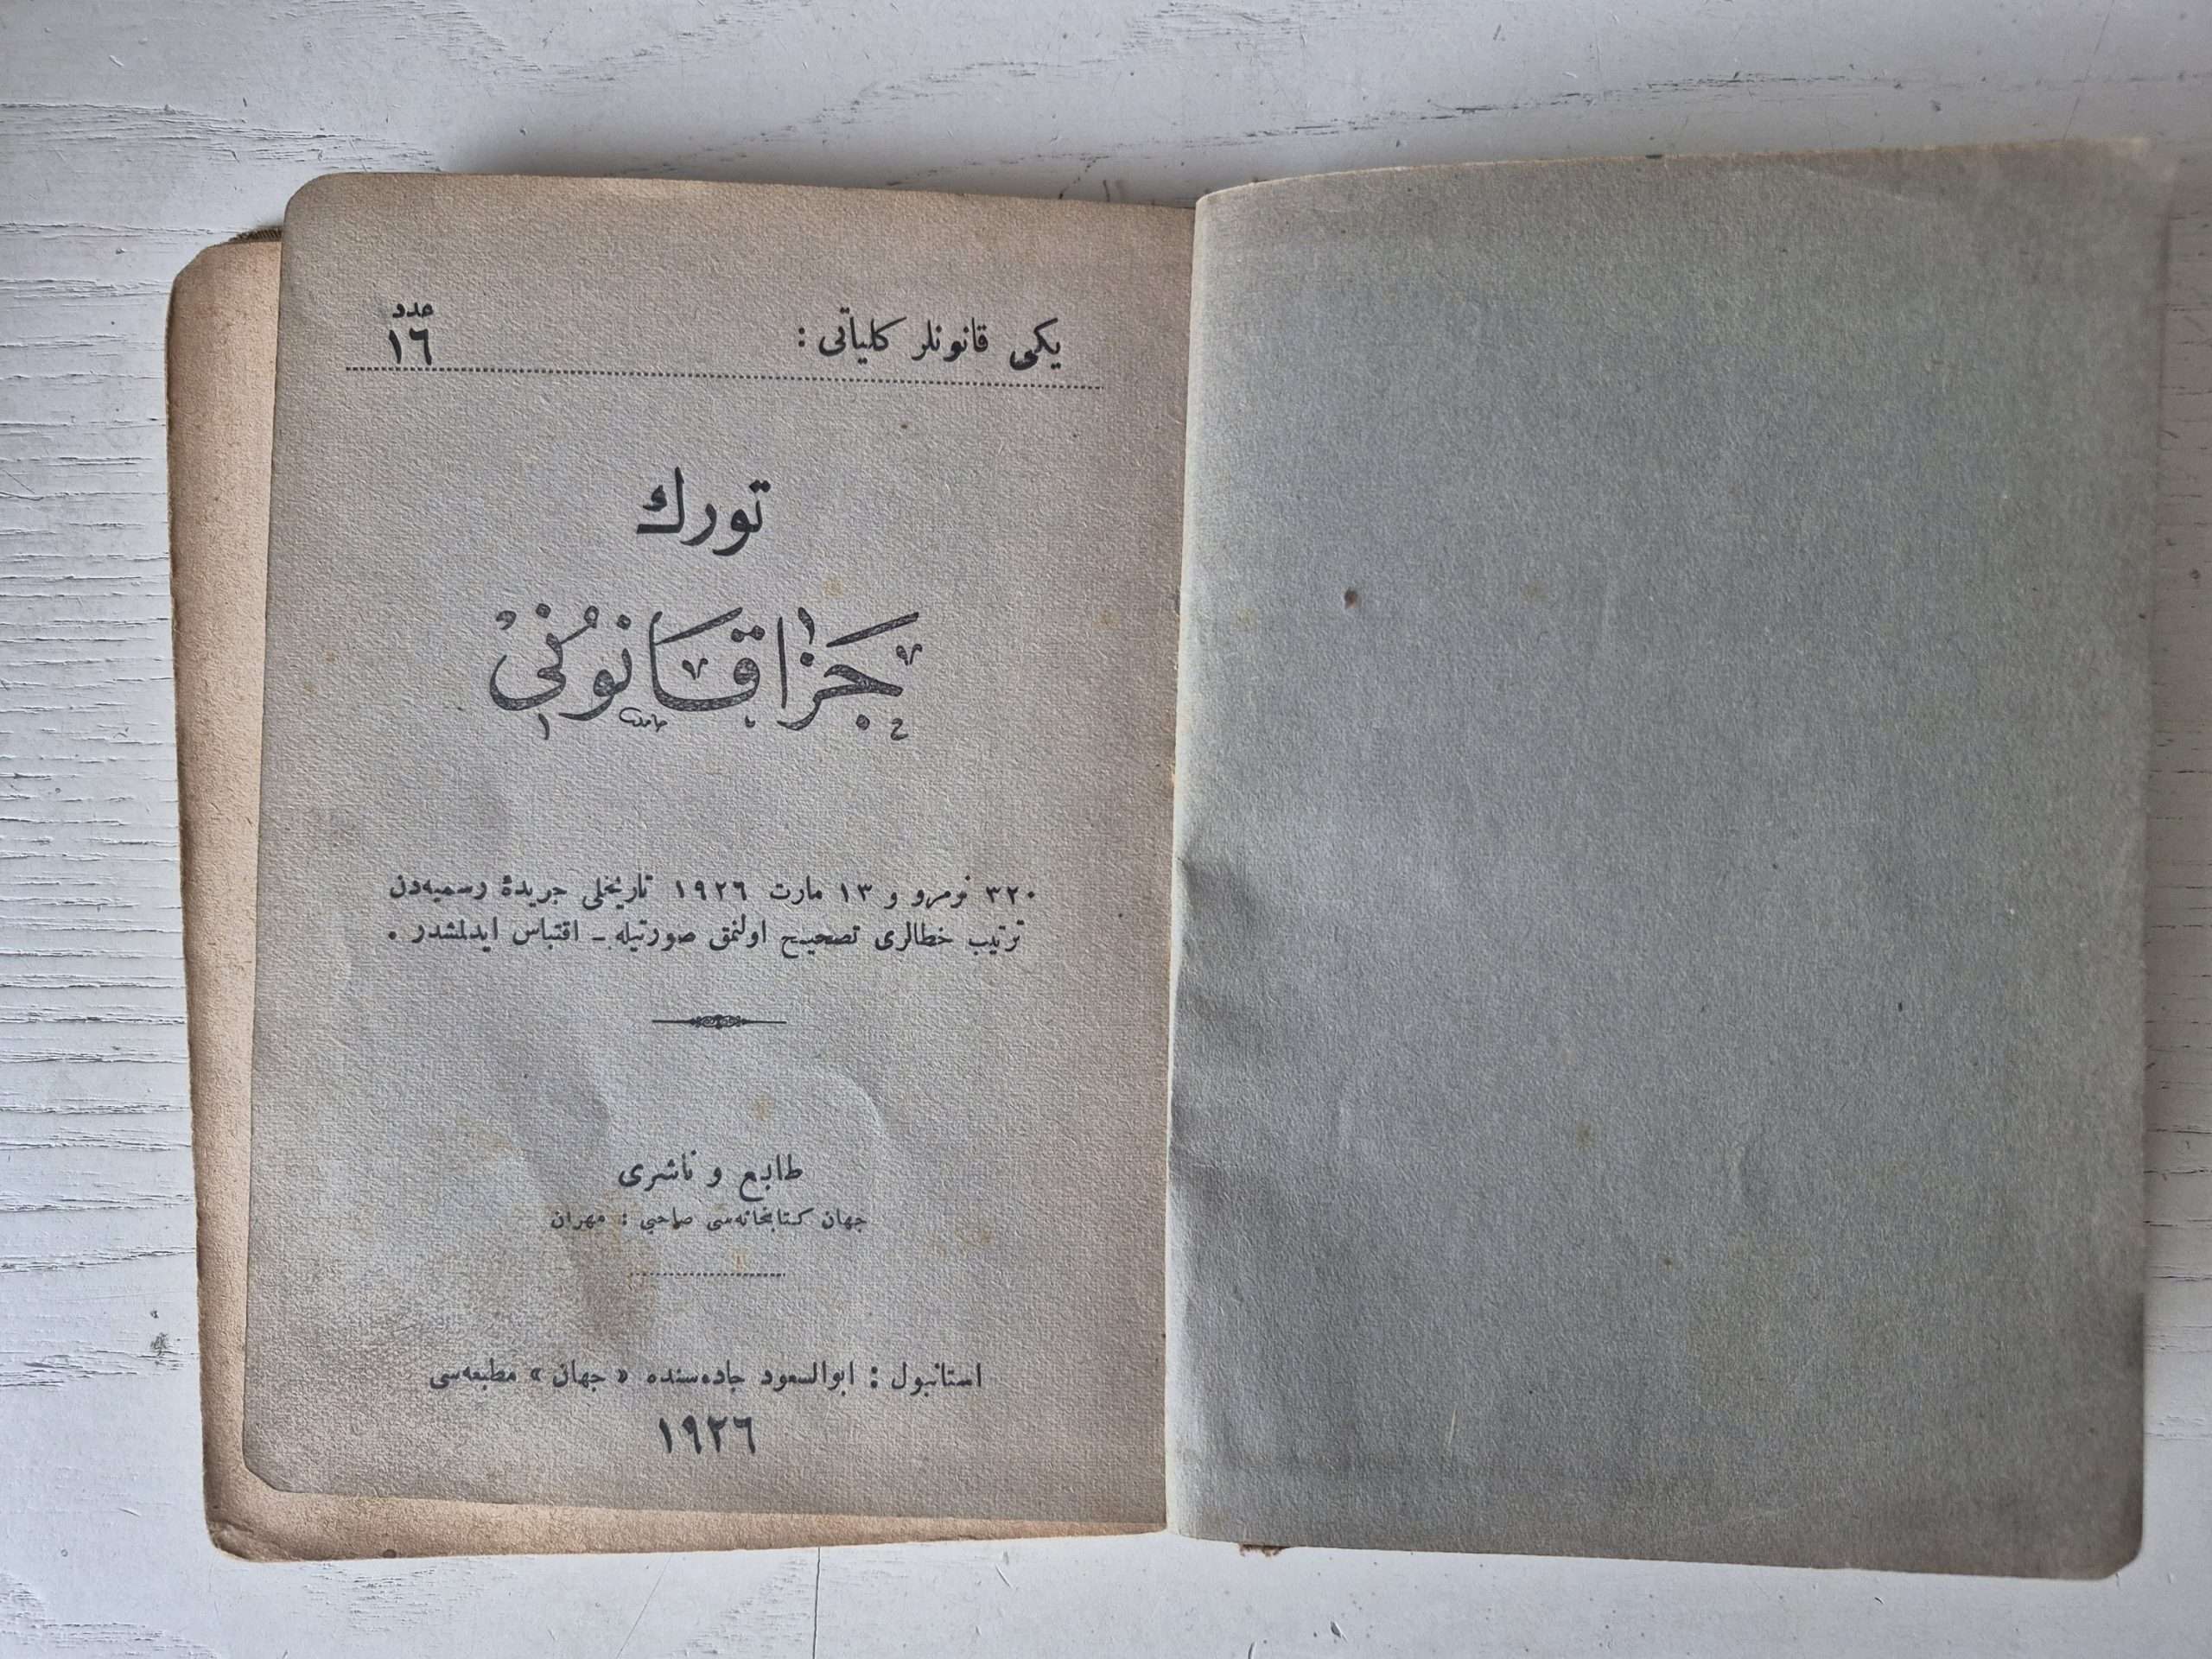 یکی قانونلر کلیاتی :
عدد
١٦
تورك
جزا قانونی
حامد
٣٢٠ نومرو و ١٣ مارت ١٩٢٦ تاریخلی جریدۀ رسمیه‌دن
ترتیب خطالری تصحیح اولنمق صورتیله ـ اقتباس ایدلمشدر .
طابع و ناشری
جهان کتابخانه‌سی صاحبی : مهران
استانبول : ابوالسعود جاده‌سنده « جهان » مطبعه‌سی
١٩٢٦